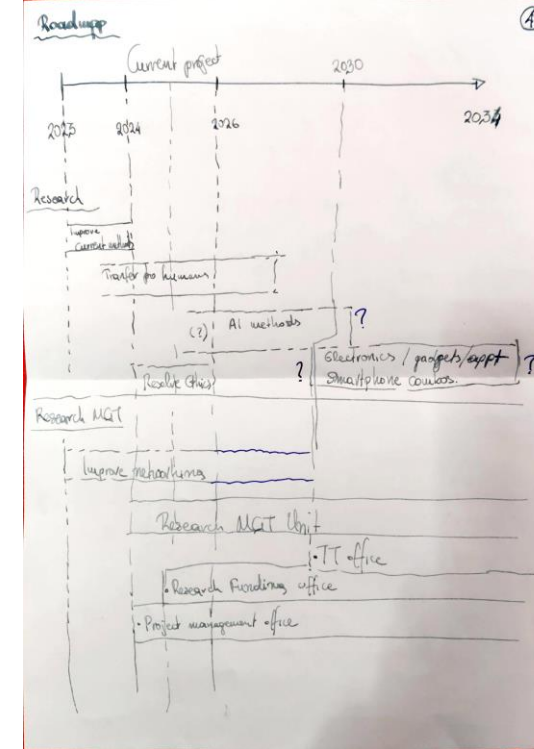 Roadmapp
A
Current project
2030
2023
2024
2026
2034
Research
Improve
Current methods
Tranfer pro humans
(?) AI methods
?
Electronics / gadgets/appt
Smartphone combos.
?
?
Resolve Ethics
Research MGT
Improve networking
Research MGT Unit
• TT office
• Research Funding office
• Project management office